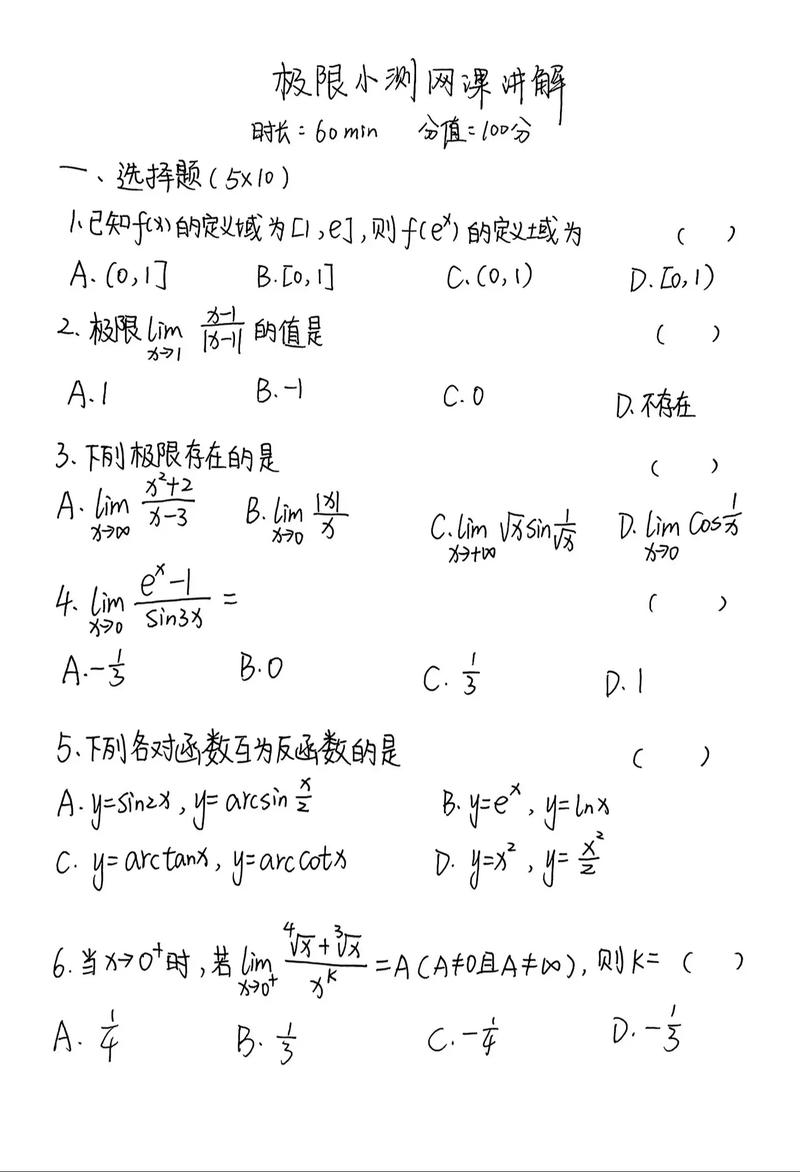 极限小测网课讲解
时长=60min 分值=100分
一、选择题(5×10)
1.已知f(x)的定义域为[1,e],则f(eˣ)的定义域为 ( )
A.(0,1] B.[0,1] C.(0,1) D.[0,1)
2.极限lim x→1 (x-1)/|x-1| 的值是 ( )
A.1 B.-1 C.0 D.不存在
3.下列极限存在的是 ( )
A.lim x→∞ (x²+2)/(x-3) B.lim x→0 |x|/x C.lim x→+∞ √x sin 1/√x D.lim x→0 cos 1/x
4.lim x→0 (eˣ-1)/sin3x = ( )
A.-1/3 B.0 C.1/3 D.1
5.下列各对函数互为反函数的是 ( )
A.y=sin2x,y=arcsin x/2 B.y=eˣ,y=lnx
C.y=arctanx,y=arccotx D.y=x²,y=x²/2
6.当x→0⁺时,若lim x→0⁺ (⁴√x+³√x)/xᴷ =A(A≠0且A≠∞),则K=( )
A.1/4 B.1/3 C.-1/4 D.-1/3